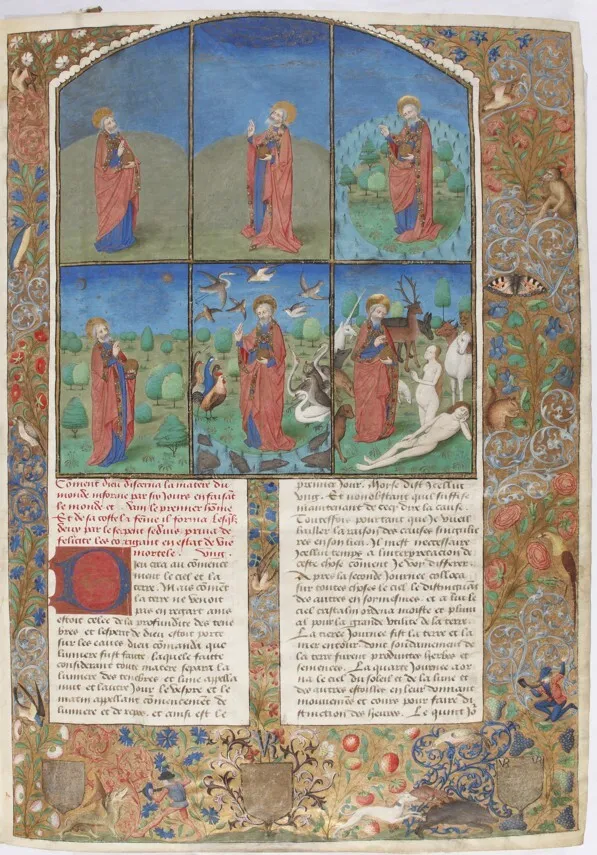 Coment dieu discerna la matere du
monde informe par six jours en faisāt
le monde et dun le premier home
Et de sa coste la feme il forma Lesqlz
deux par le serpent
mortele
Dieu crea au comence
ment le ciel et la
terre. Mais come
la terre ne venoit
pas en regart ains
estoit celee de la profundite des tene
bres et lesperit de dieu estoit porte
sur les eaues dieu cōmanda que
lumiere fust faitte. laquele faitte
considerant toute matiere separa la
lumiere des tenebres et lune appella
nuit et lautre Jour le vespre et le
matin appellant cōmencemēt de
lumiere et de repos. et ainsi est le
premier Jour. Moyse dist Icellui
ung. Et nonobstant quil suffise
maintenant de cecy dire la cause.
Toutesfois pourtant que Je vueil
baillier la raison des causes singulie
res en son lieu. Il mest necessaire
Icellui temps a linterpretacion de
ceste chose coment Je voy differer.
Apres la seconde Journee colloca
sur toutes choses le ciel le distinguāt
des autres en son mesmes. et a lui le
ciel cristalin ordena moiste et pluvi
al pour la grande utilite de la terre.
La tierce Journee fist la terre et la
mer entour dont soudainement de
la terre furent produittes herbes et
semences. La quarte Journee aor
na le ciel du soleil et de la lune et
des autres estoilles en leur donnant
mouvemēs et cours pour faire di
stinction des heures. Le quint Jo